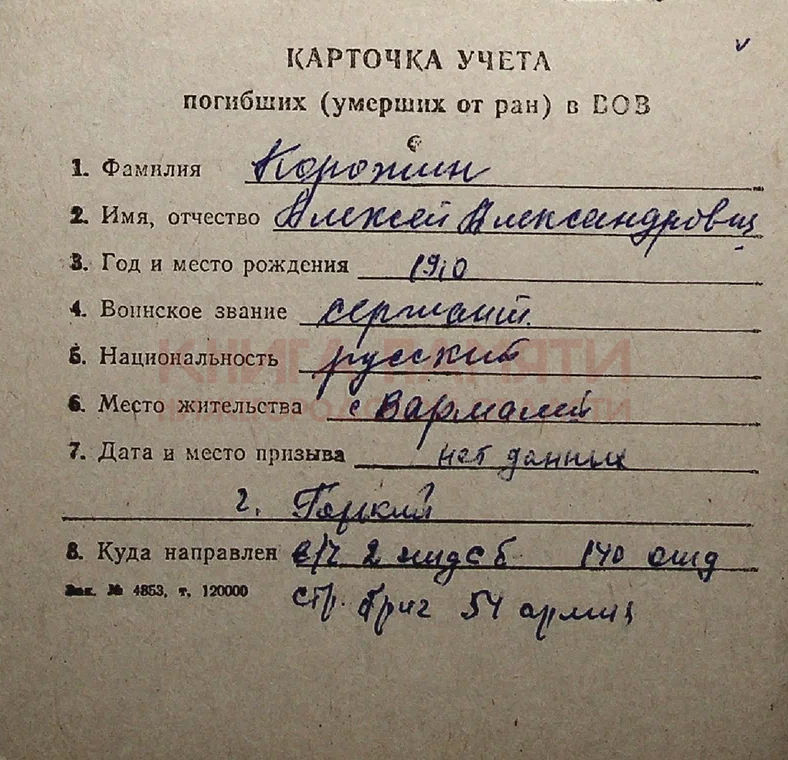 КАРТОЧКА УЧЕТА
погибших (умерших от ран) в ВОВ
1. Фамилия Коротин
2. Имя, отчество Алексей Александрович
3. Год и место рождения 1910
4. Воинское звание сержант
5. Национальность русский
КНИГА ПАМЯТИ
6. Место жительства с Вармалей
7. Дата и место призыва нет данных
г. Горький
8. Куда направлен в/ч 2 140
Зак. № 4853, т. 120000
стр. бриг 54 армии